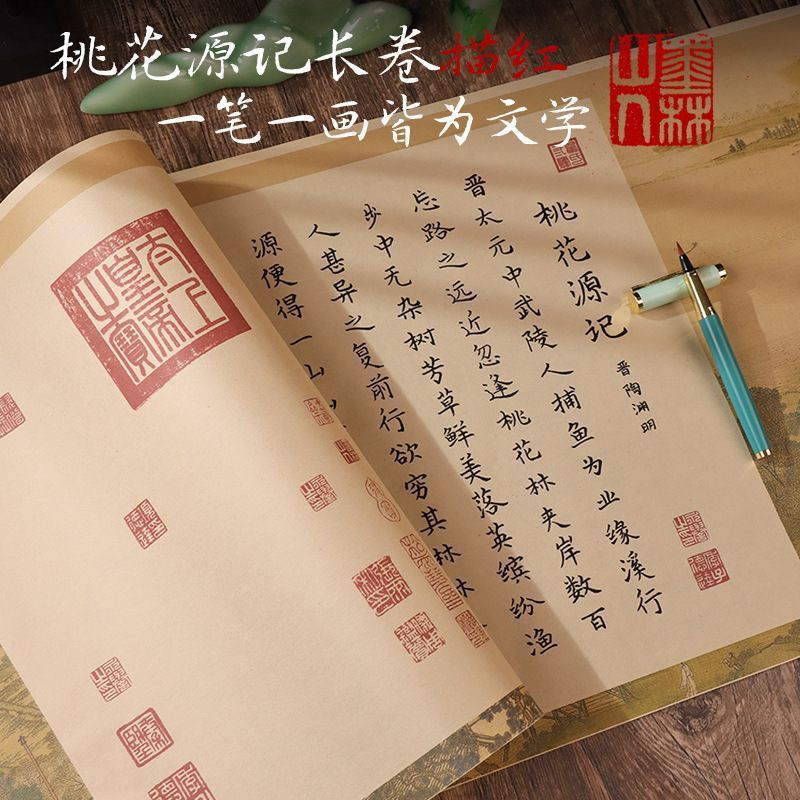 桃花源记长卷描红
一笔一画皆为文学
墨林山人
桃花源记
晋陶渊明
晋太元中武陵人捕鱼为业缘溪行
忘路之远近忽逢桃花林夹岸数百
步中无杂树芳草鲜美落英缤纷渔
人甚异之复前行欲穷其林林
源便得一山
太上皇帝之宝